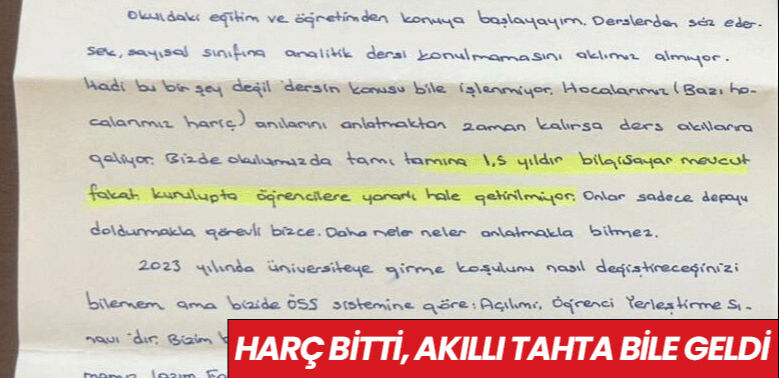 Okuldaki eğitim ve öğretimden konuya başlayayım. Derslerden söz eder-
sek, sayısal sınıfına analitik dersi konulmamasını aklımız almıyor.
Hadi bu bir şey değil dersin konusu bile işlenmiyor. Hocalarımız (Bazı ho-
calarımız hariç) anılarını anlatmaktan zaman kalırsa ders akıllarına
geliyor. Bizde okulumuzda tamı tamına 1,5 yıldır bilgisayar mevcut
fakat kurulupta öğrencilere yararlı hale getirilmiyor. Onlar sadece depoyu
doldurmakla görevli bizce. Daha neler neler anlatmakla bitmez.
2023 yılında üniversiteye girme koşulunu nasıl değiştireceğinizi
bilemem ama bizide ÖSS sistemine göre: Açılımı, Öğrenci Yerleştirme Sı-
navı'dır. Bizim
HARÇ BİTTİ, AKILLI TAHTA BİLE GELDİ
lazım